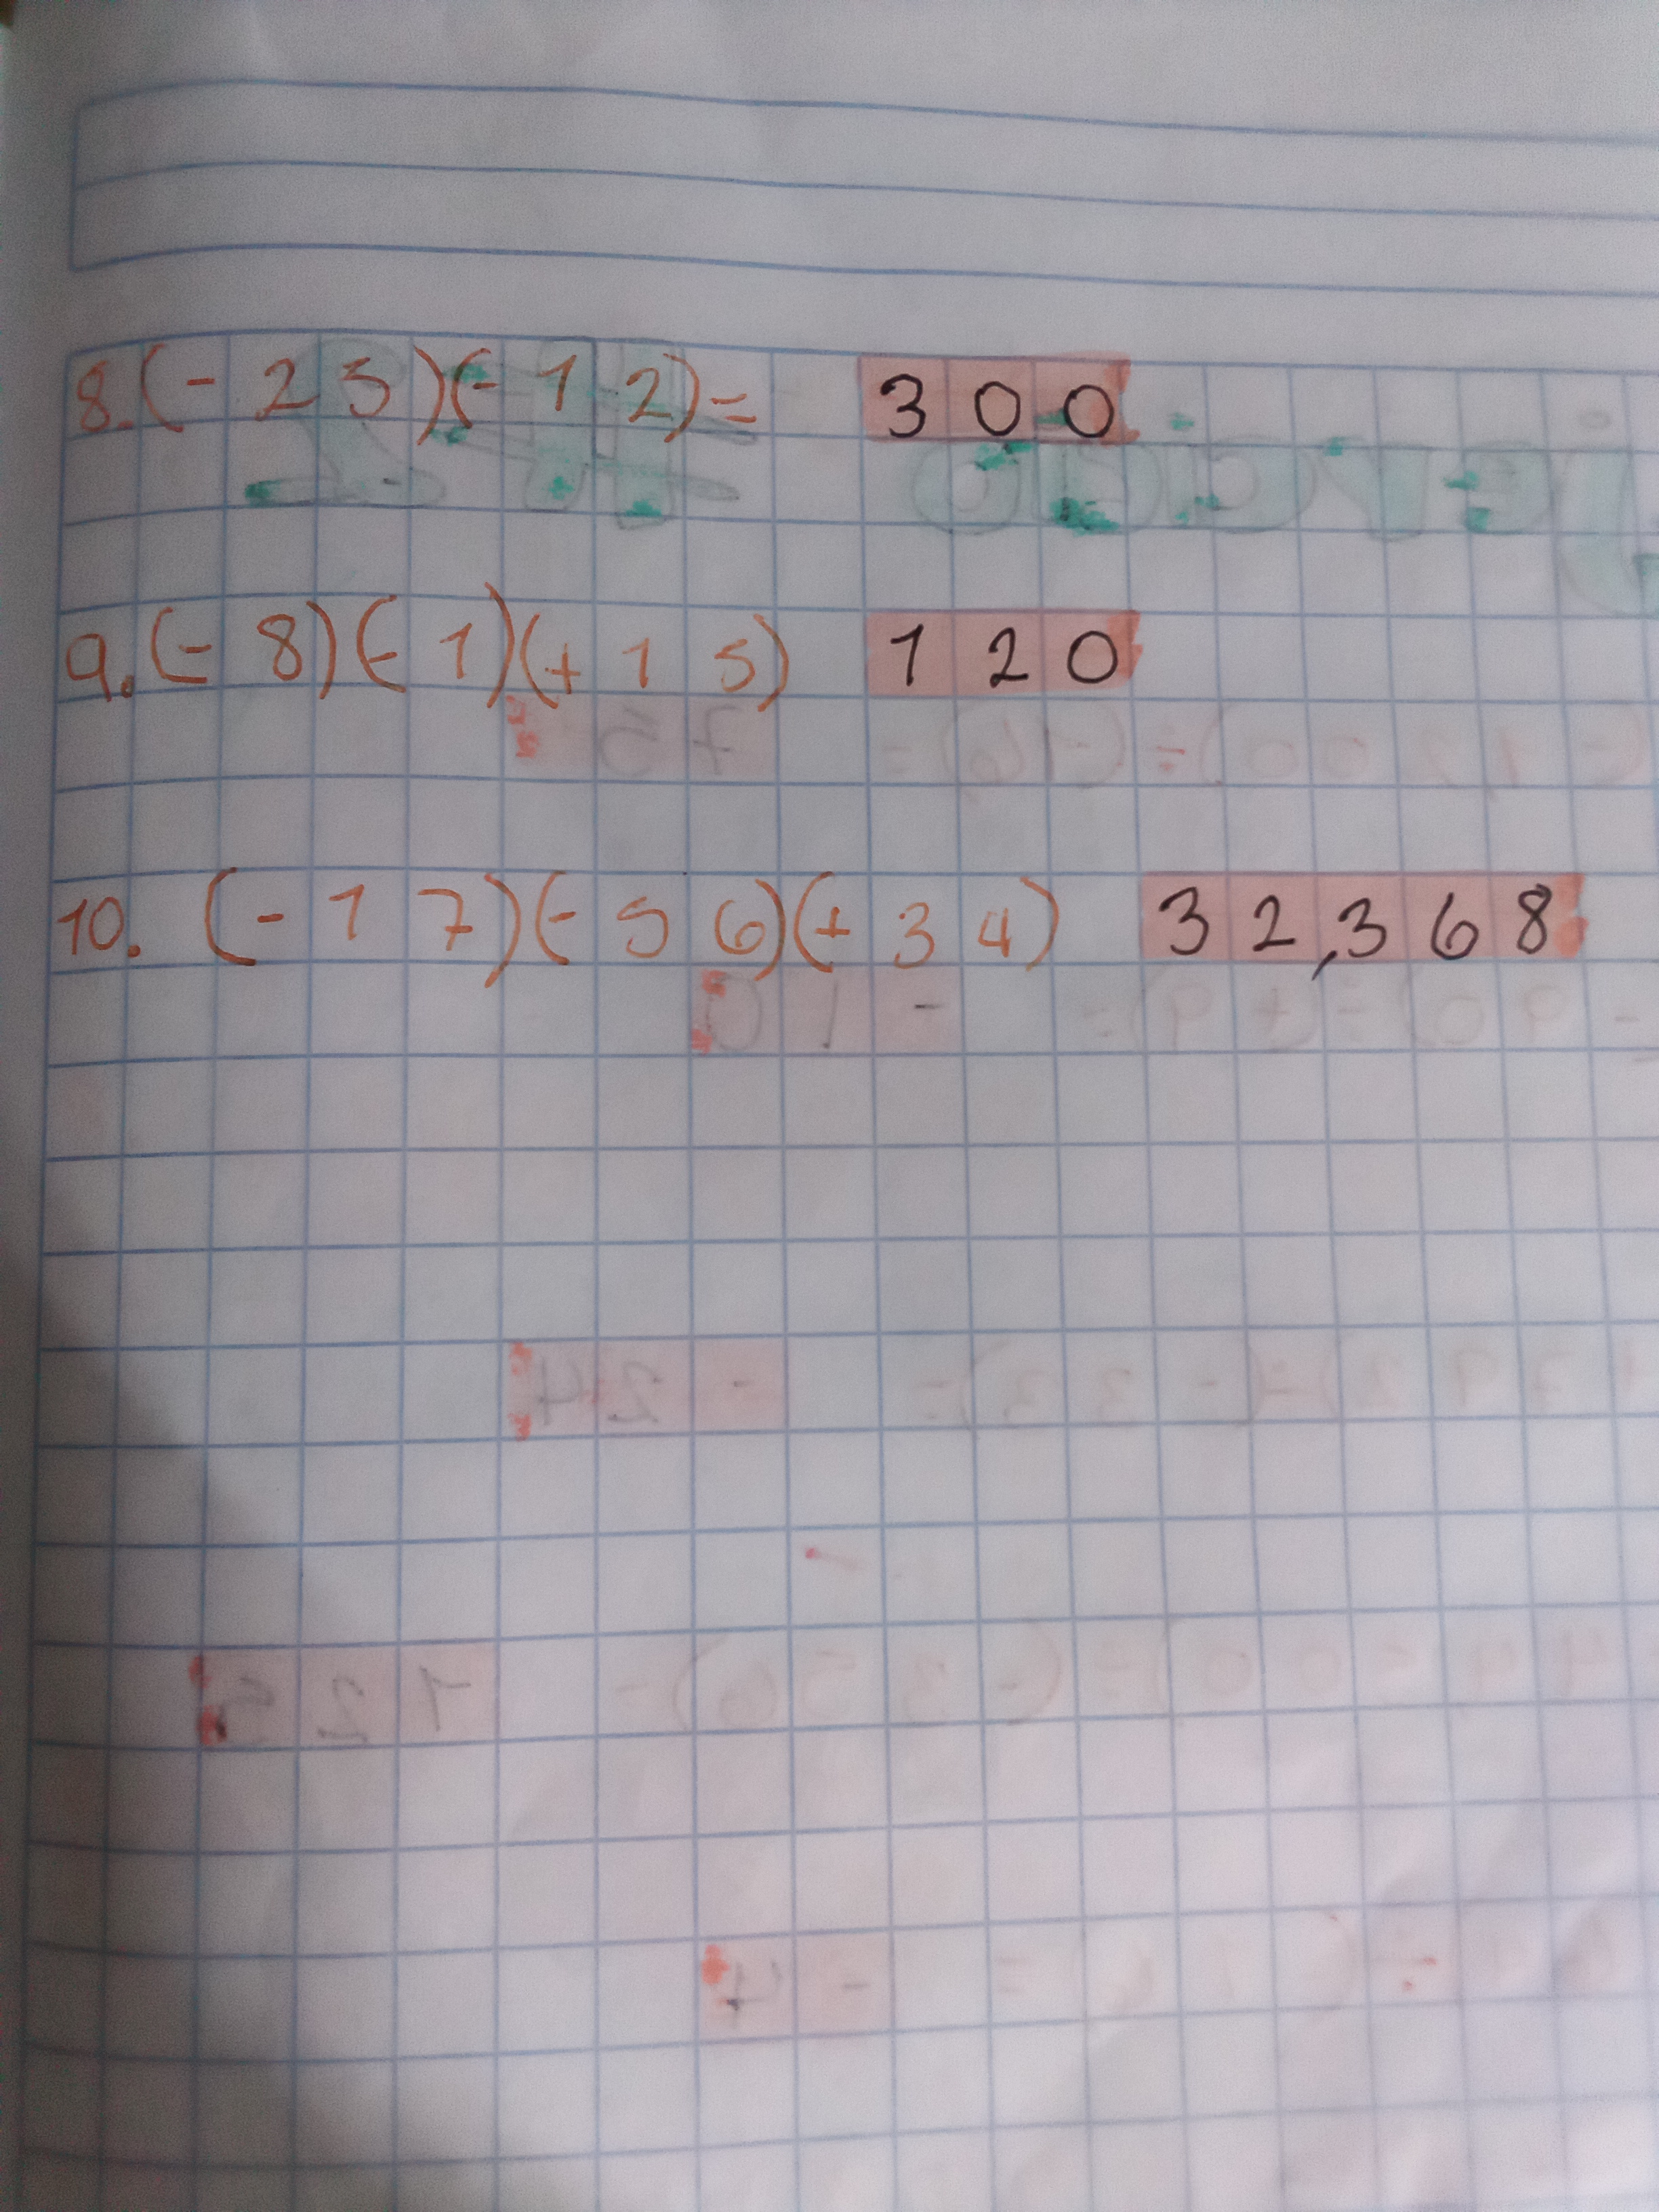 8. (-25)(-12)= 300
9. (-8)(-1)(+15) 120
10. (-17)(-56)(+34) 32,368